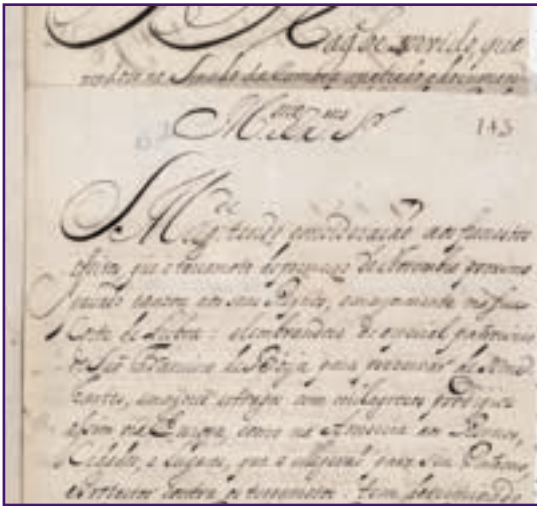 Mag.e he servido, que
no Senado da Camara
S.r 143
S. Mag.de tendo consideração aos funestos
effeitos, que o terramoto do principio de Novembro proximo
passado cauzou aos seus Reynos, e mayormente na sua
Corte de Lisboa: e lembrandose do especial patrocinio
de São Francisco de Borja para preservar de
estragos com milagrosos prodigios
assim na Europa, como na America aos Reynos,
Cidades, e Lugares, que o elegerão para seu Patrono,
e Protector contra os terramotos: tem determinado